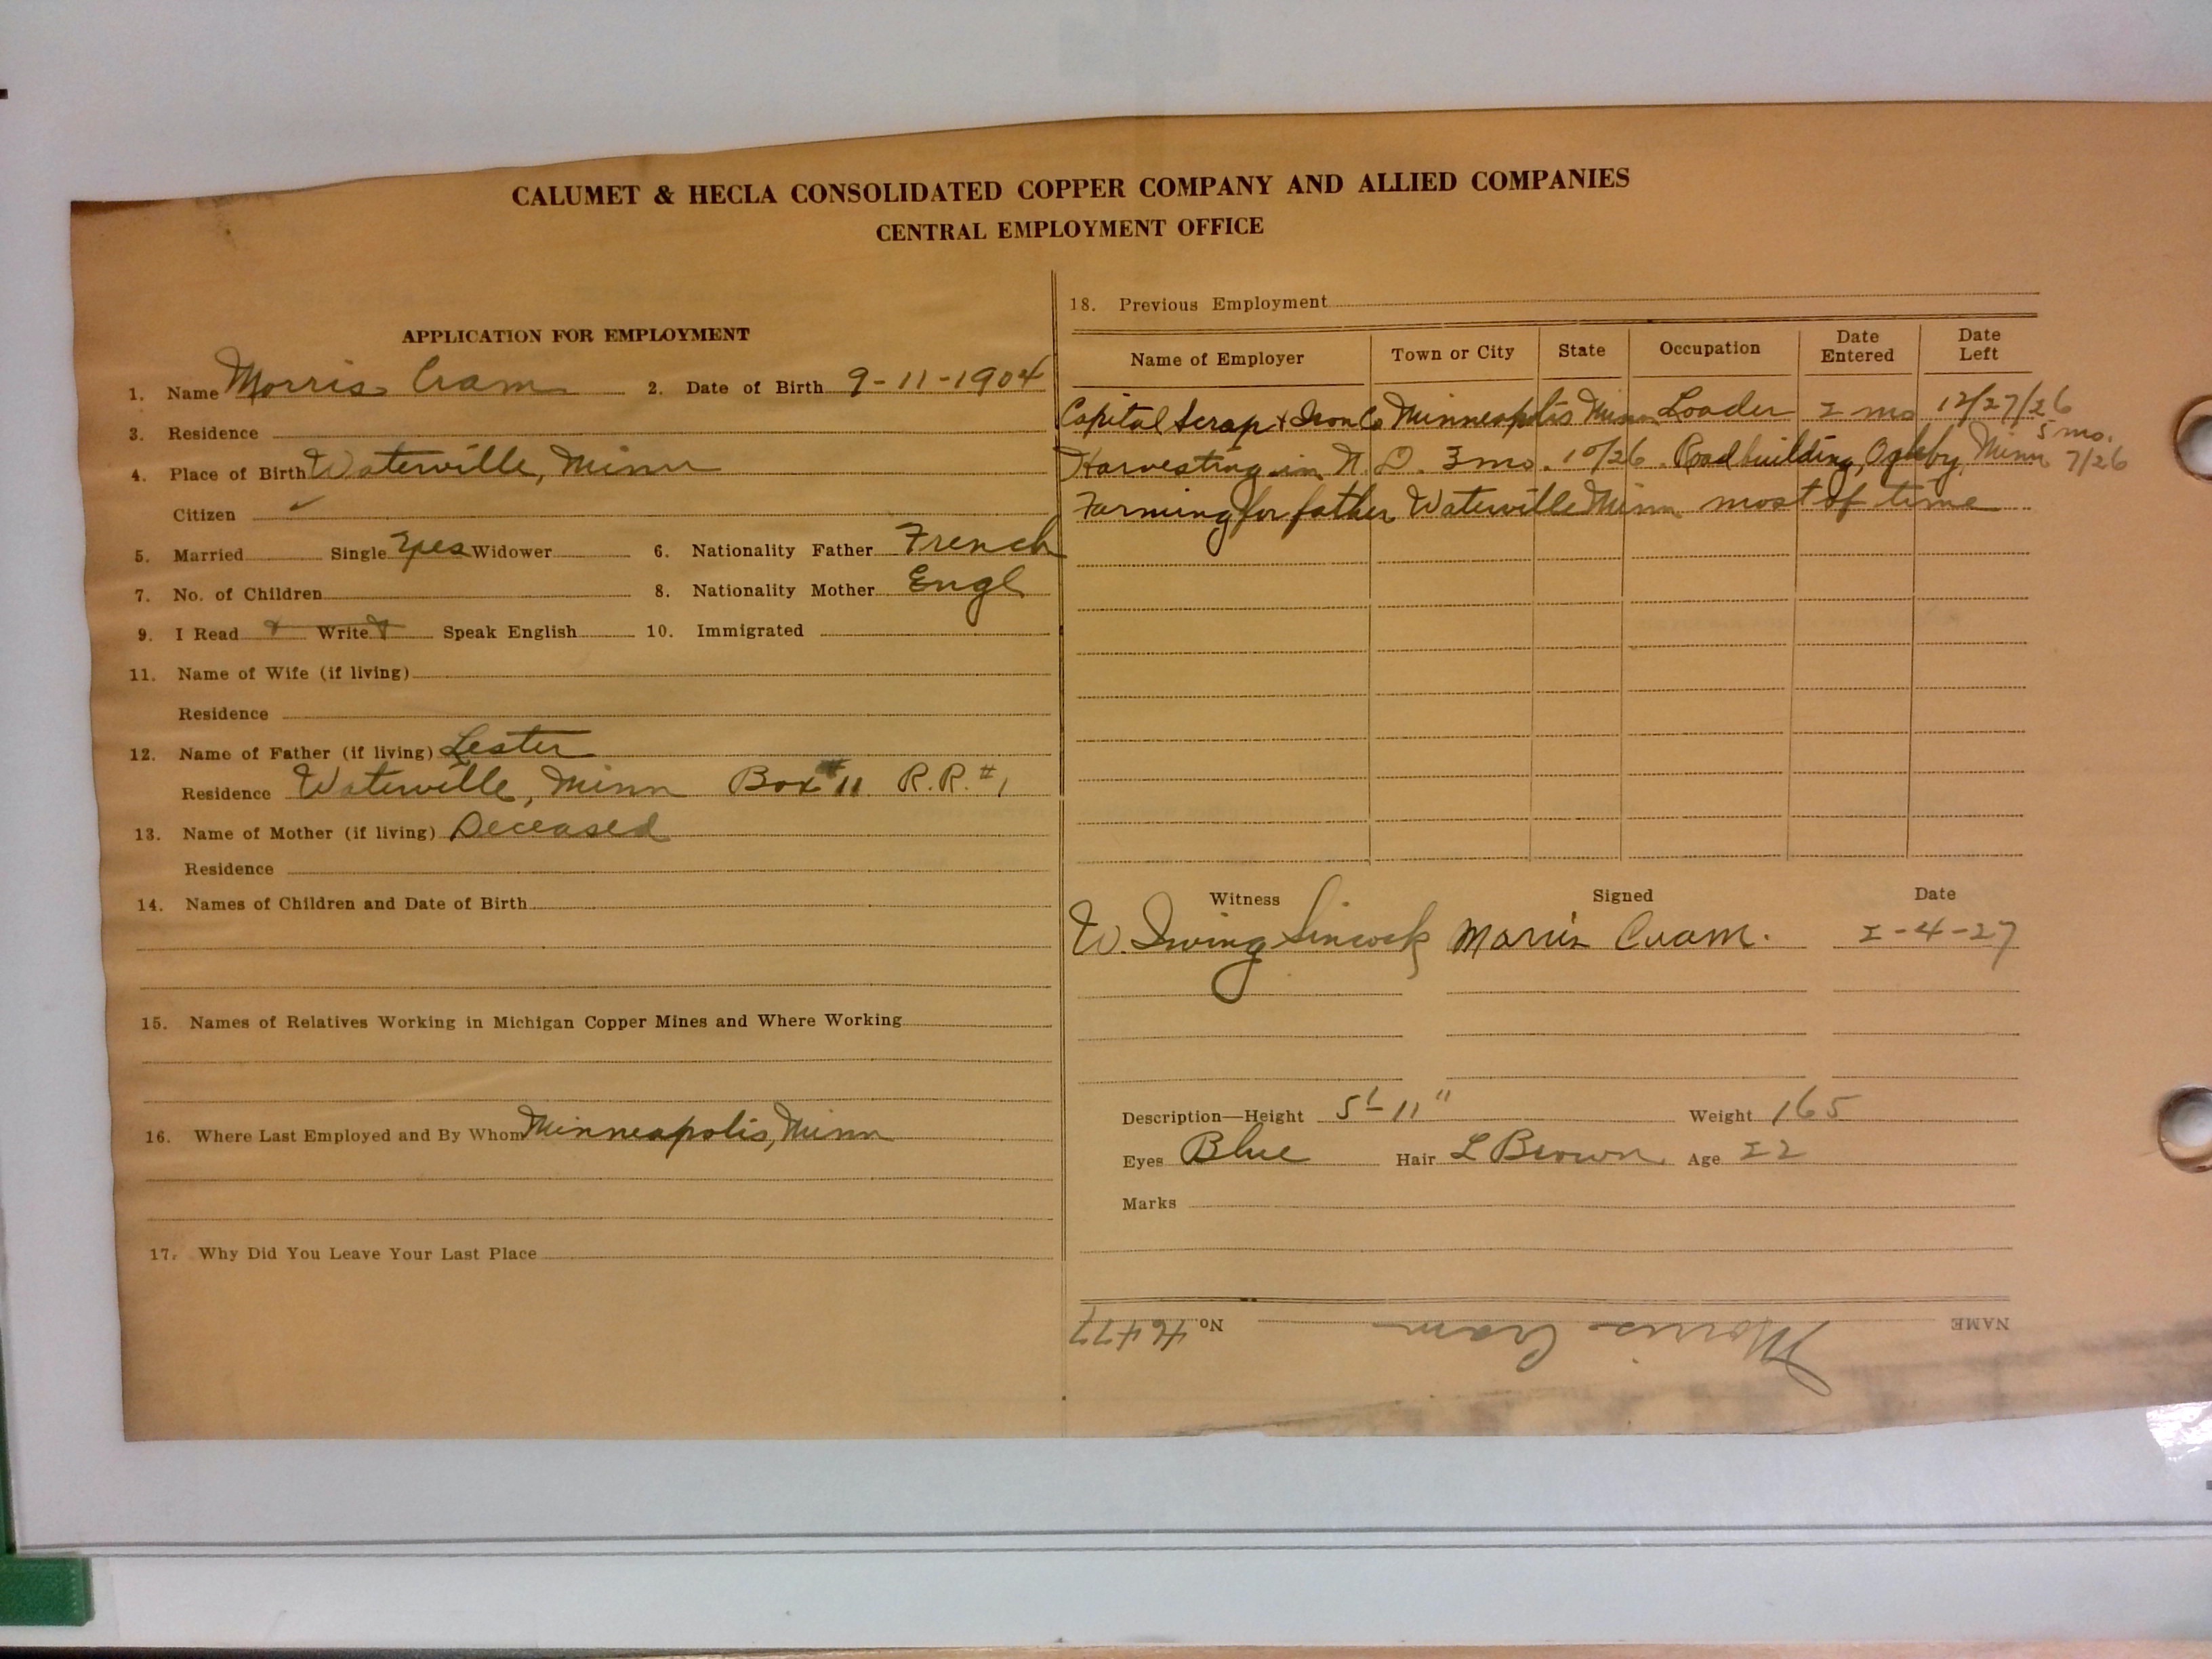 CALUMET & HECLA CONSOLIDATED COPPER COMPANY AND ALLIED COMPANIES
CENTRAL EMPLOYMENT OFFICE
APPLICATION FOR EMPLOYMENT
1. Name Morris Cram 2. Date of Birth 9-11-1904
3. Residence
4. Place of Birth Waterville, Minn
Citizen ✓
5. Married Single Yes Widower 6. Nationality Father French
7. No. of Children 8. Nationality Mother Engl
9. I Read Write Speak English 10. Immigrated
11. Name of Wife (if living)
Residence
12. Name of Father (if living) Lester
Residence Waterville, Minn Box #11 R.R. #1
13. Name of Mother (if living) Deceased
Residence
14. Names of Children and Date of Birth
15. Names of Relatives Working in Michigan Copper Mines and Where Working
16. Where Last Employed and By Whom Minneapolis, Minn
17. Why Did You Leave Your Last Place
18. Previous Employment
Name of Employer Town or City State Occupation Date Entered Date Left
Capital Scrap + Iron Co Minneapolis Minn Loader 2 mo 12/27/26
Harvesting in N. D. 3 mo. 10/26. Road building, Minn 5 mo. 7/26
Farming for father Waterville Minn. most of time
Witness Signed Date
W. Irving Sincock Morris Cram. 2-4-27
Description—Height 5'-11" Weight 165
Eyes Blue Hair L Brown Age 22
Marks
NAME Morris Cram No. 46477